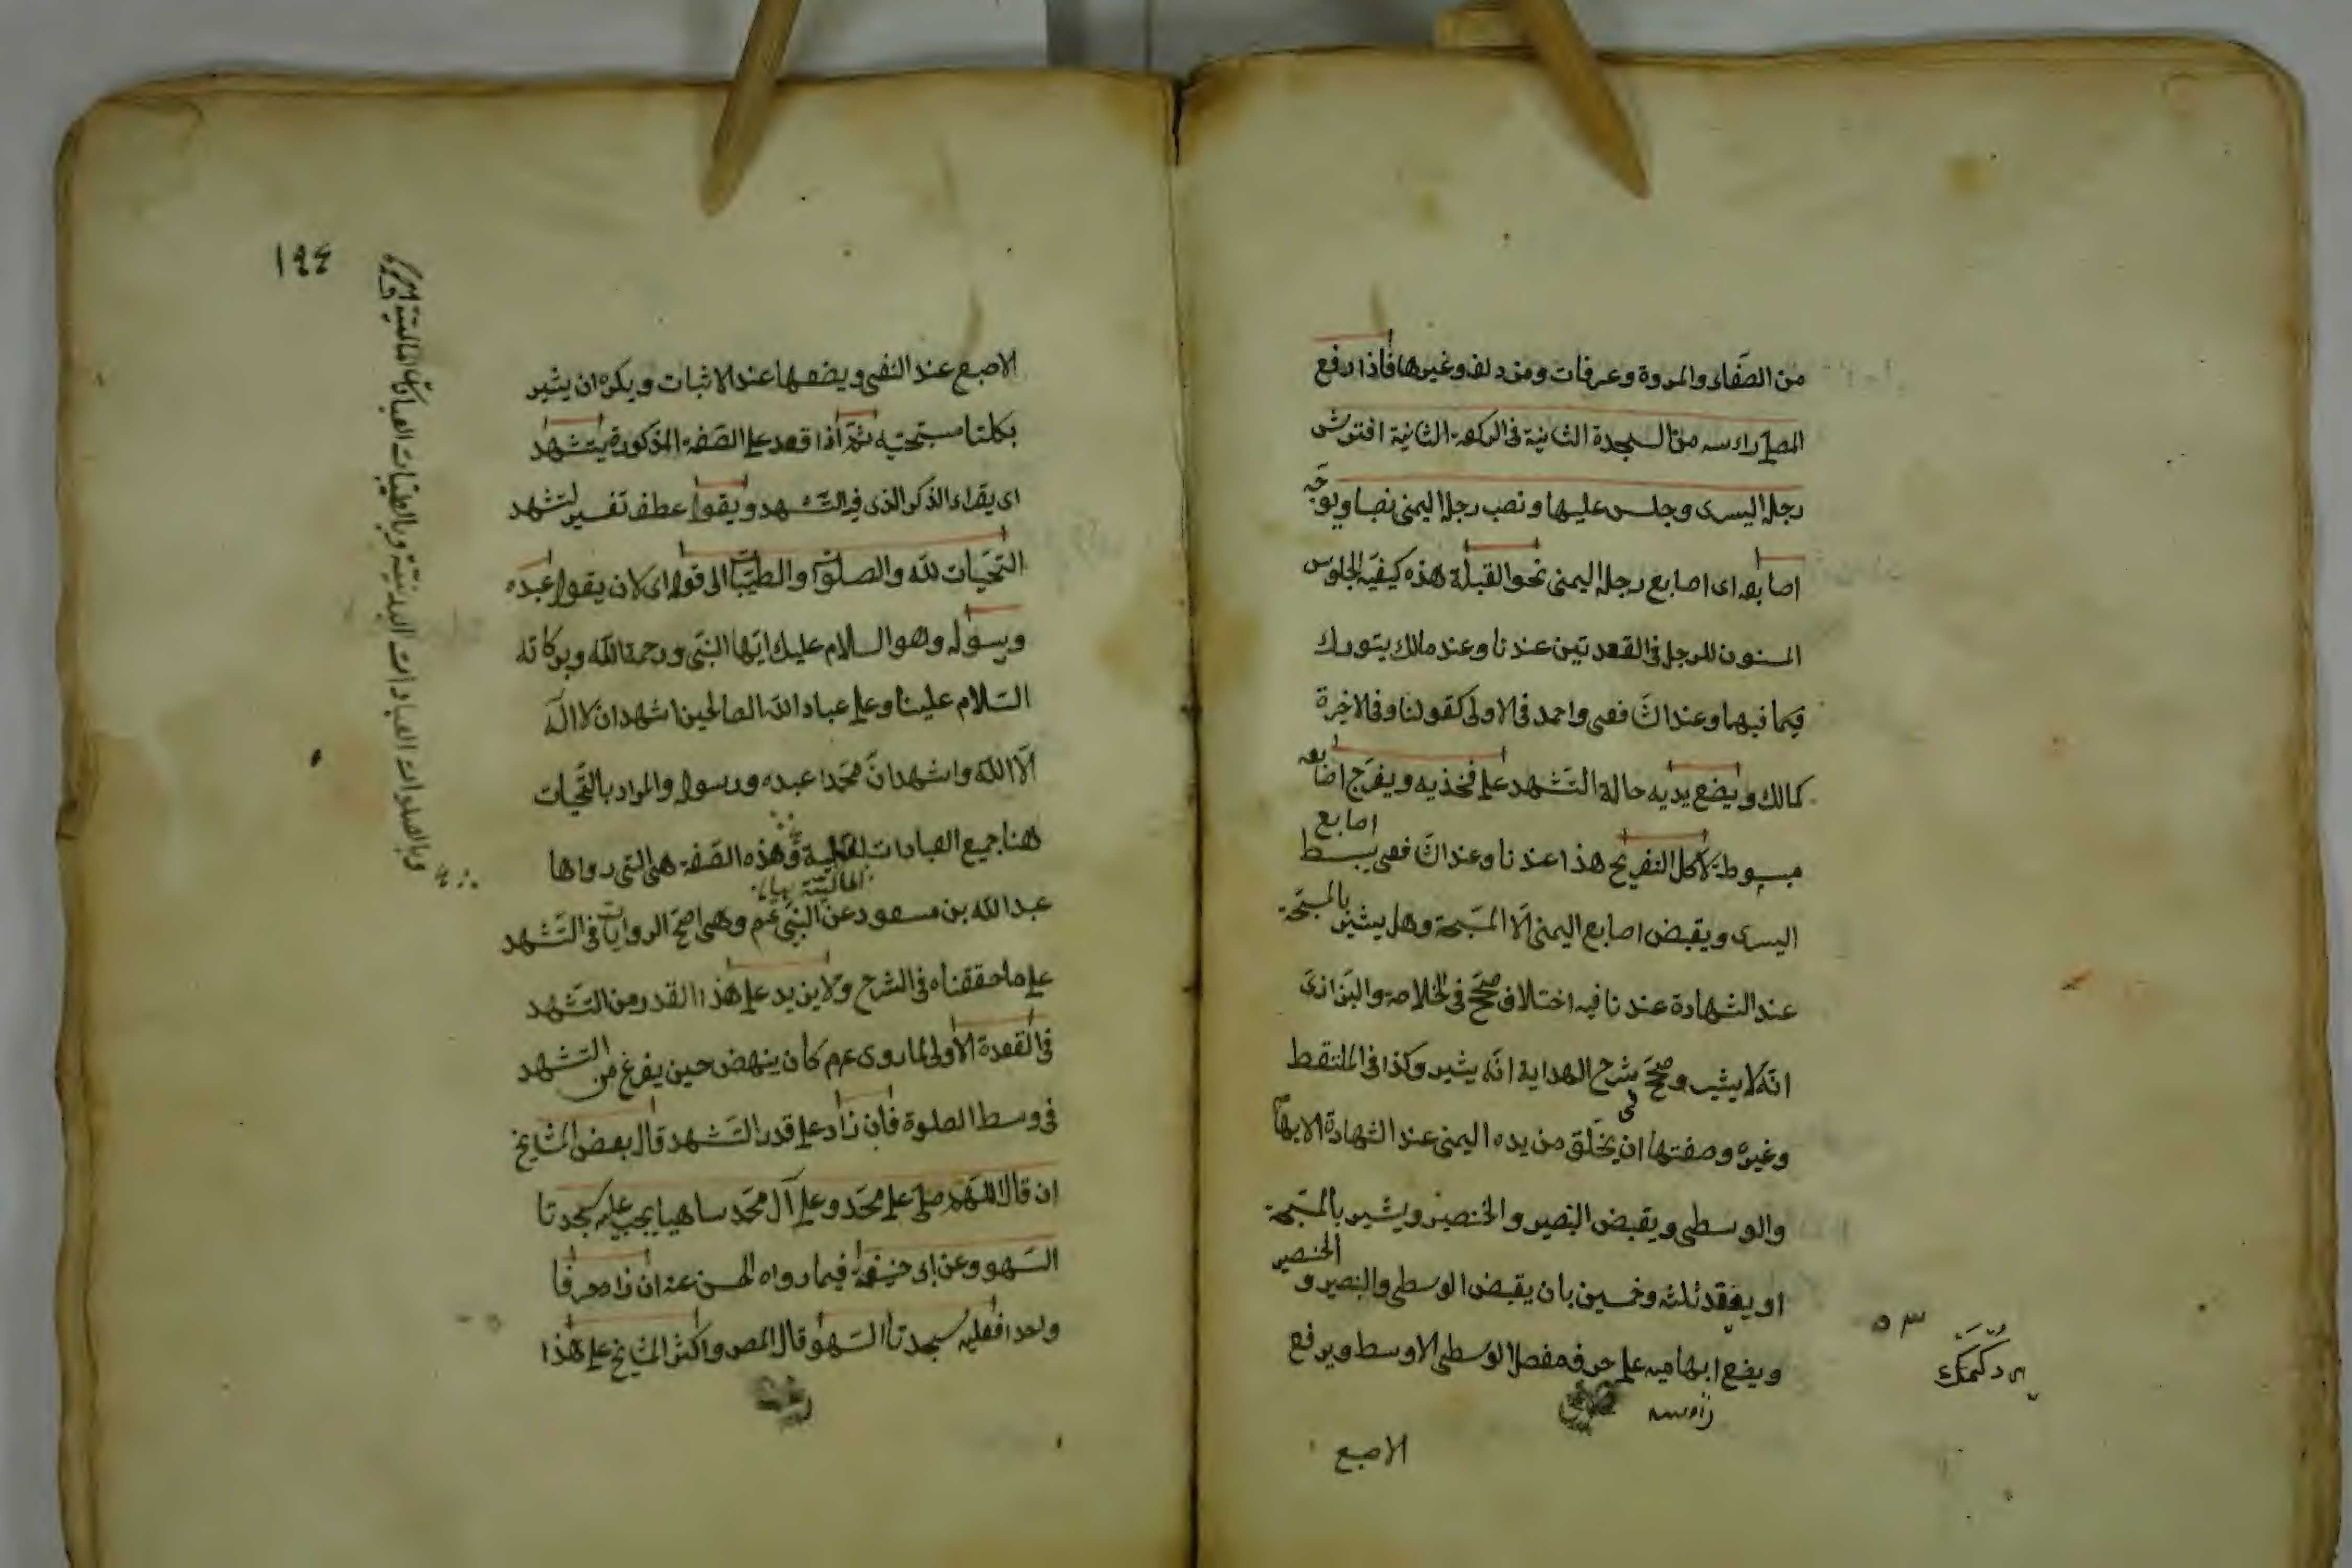 من الصفاء والمروة وعرفات ومزدلفه وغيرها فاذا رفع
المصلي راءسه من السجدة الثانية في الركعة الثانية افترش
رجله اليسرى وجلس عليها ونصب رجله اليمنى نصبا ويوجه
اصابعه اى اصابع رجله اليمنى نحو القبلة هذه كيفية الجلوس
المسنون للرجل في القعدتين عندنا وعند مالك يتورك
فيما فيهما وعند الشافعى واحمد في الاولى كقولنا وفي الاخيرة
كمالك ويضع يديه حالة التشهد على فخذيه ويفرج اصابعه
مبسوطة لا كل التفريج هذا عندنا وعند الشافعى يبسط اصابع
اليسرى ويقبض اصابع اليمنى الا المسبحة وهل يشير بالمسبحة
عند الشهادة عندنا فيه اختلاف صحح في الخلاصة والبزازى
انه لا يشير وصحح في شرح الهداية انه يشير وكذا في الملتقط
وغيره وصفتها ان يحلق من يده اليمنى عند الشهادة الابهام
والوسطى ويقبض البنصر والخنصر ويشير بالمسبحة
او يعقد ثلثة وخمسين بان يقبض الوسطى والبنصر والخنصر
ويضع ابهاميه على حرف مفصل الوسطى الاوسط ويرفع
٥٣
الاصبع
١٩٤
الاصبع عند النفى ويضعها عند الاثبات ويكره ان يشير
بكلتا مسبحتيه ثم اذا قعد على الصفه المذكورة يتشهد
اى يقراء الذكر الذى فيه التشهد ويقول عطف تفسير لتشهد
التحيات لله والصلوات والطيبات الى قوله اى لان يقول عبده
ورسوله وهو السلام عليك ايها النبى ورحمة الله وبركاته
السلام علينا وعلى عباد الله الصالحين اشهد ان لا اله
الا الله واشهد ان محمدا عبده ورسوله والمراد بالتحيات
هنا جميع العبادات وهذه الصفة هى التى رواها
عبد الله بن مسعود عن النبى عم وهى اصح الروايات في التشهد
على ما حققناه في الشرح ولا يزيد على هذا القدر من التشهد
في القعدة الاولى لما روى عم كان ينهض حين يفرغ من التشهد
في وسط الصلوة فان زاد على قدر التشهد قال بعض المشايخ
ان قال اللهم صل على محمد وعلى آل محمد ساهيا يجب عليه سجدتا
السهو وعن ابى حنيفة فيما رواه الحسن عنه ان زاد حرفا
واحدا فعليه سجدتا السهو قال المص واكثر المشايخ على هذا
وبالصلوات العبادات البدنية وبالطيبات العبادات المالية